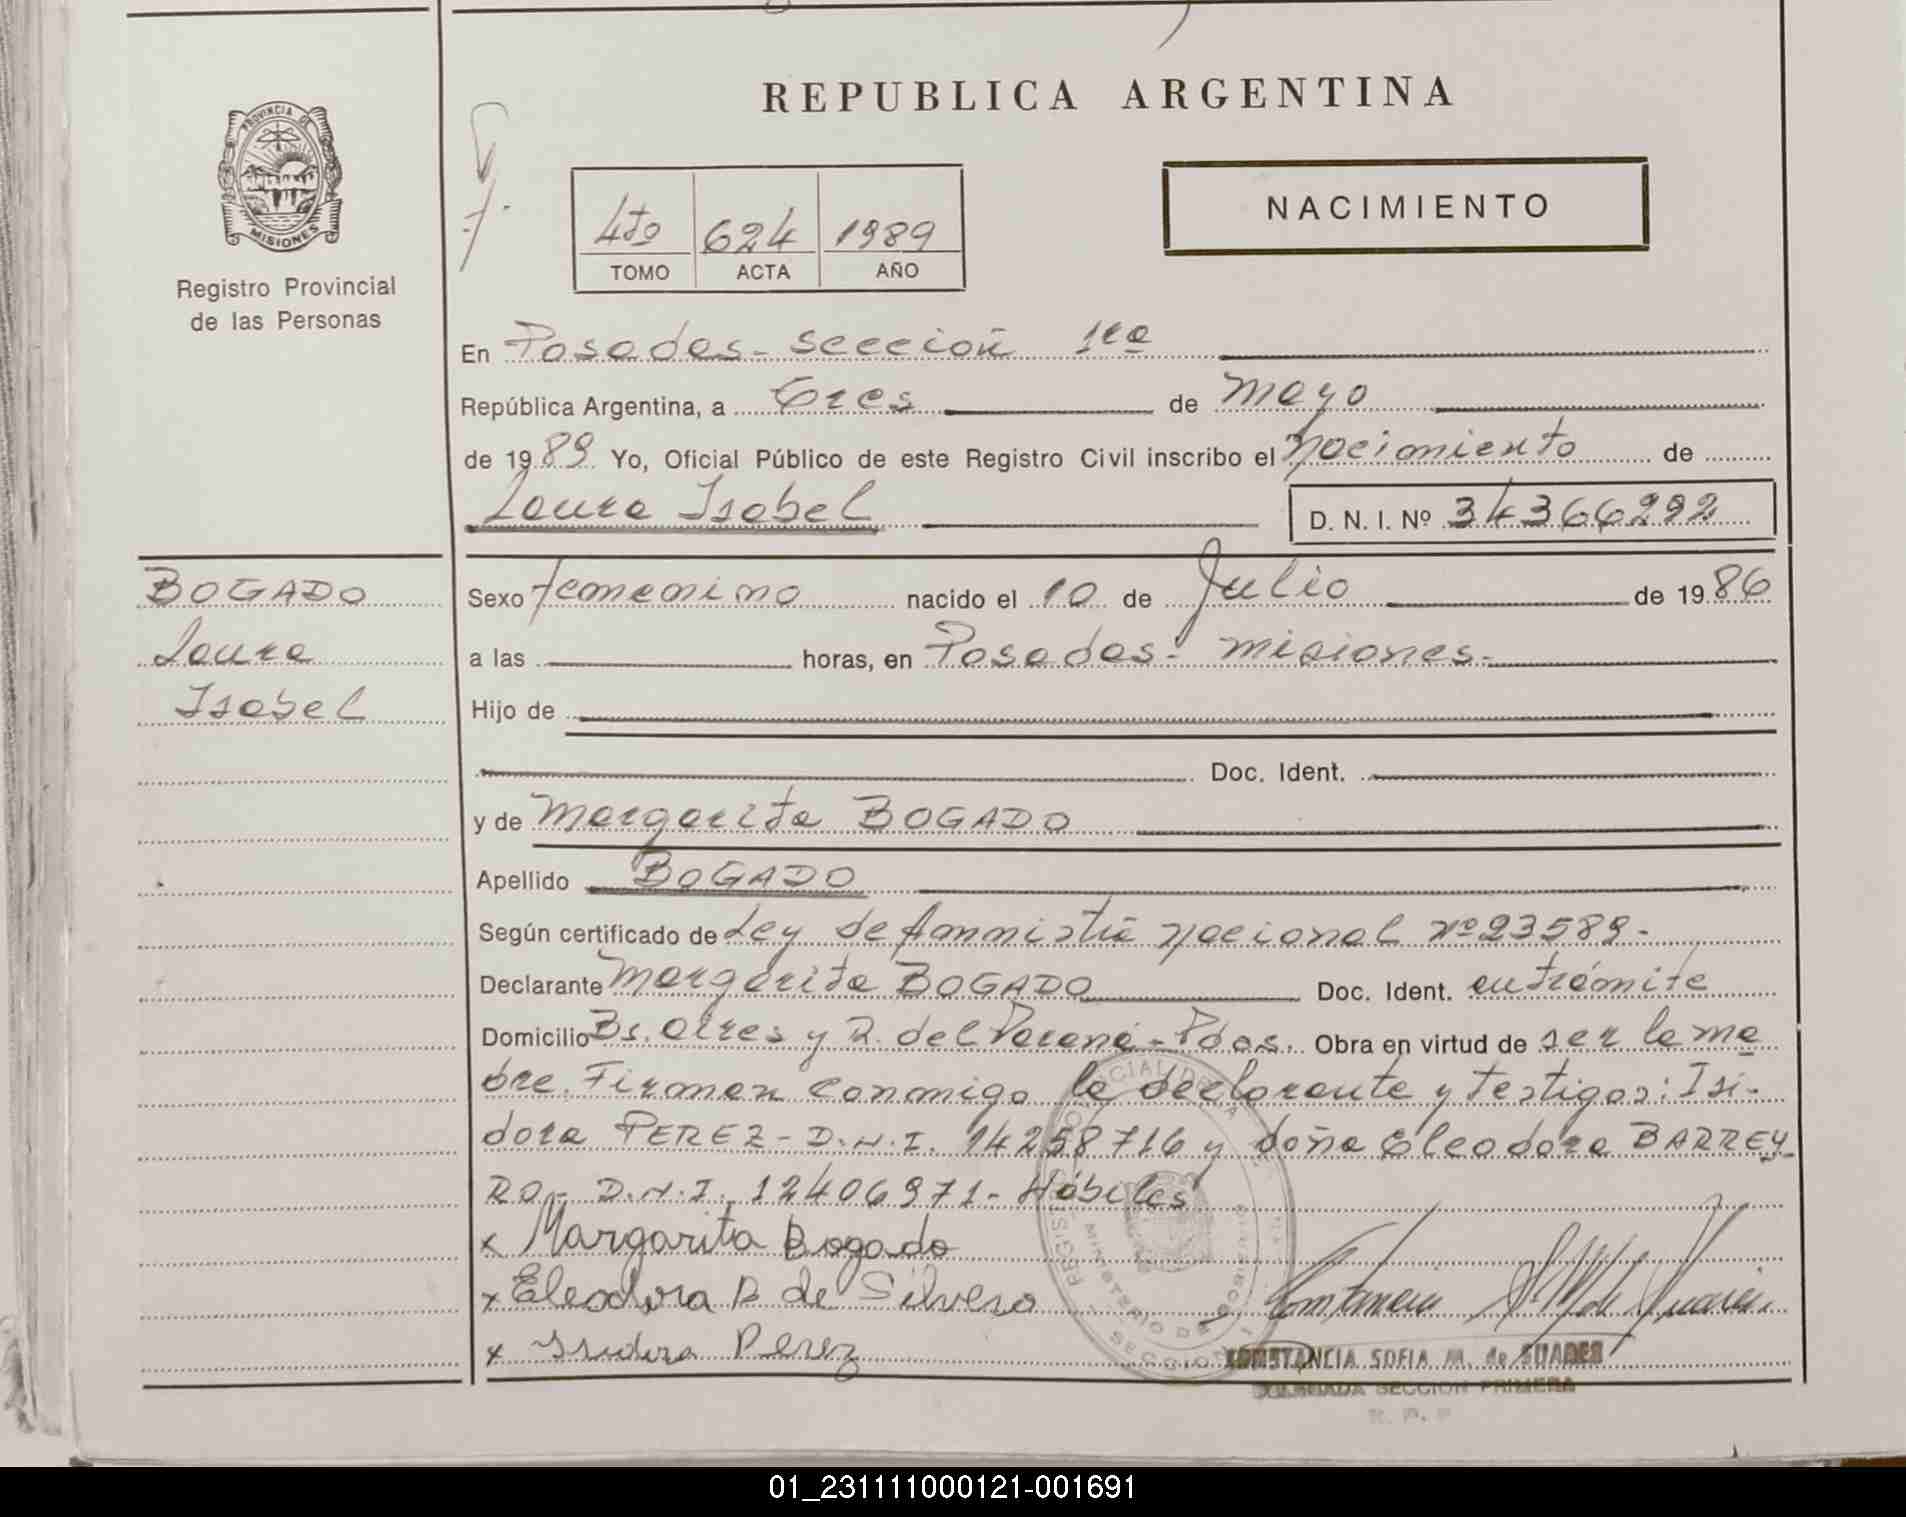 REPUBLICA ARGENTINA
PROVINCIA DE
MISIONES
Registro Provincial
de las Personas
4to 624 1989
TOMO ACTA AÑO
NACIMIENTO
En Posadas - Sección 1ra
República Argentina, a Tres de Mayo
de 1989 Yo, Oficial Público de este Registro Civil inscribo el Nacimiento de
Laura Isabel D. N. I. Nº 34366292
BOGADO
Laura
Isabel
Sexo femenino nacido el 10 de Julio de 1986
a las horas, en Posadas - Misiones -
Hijo de
Doc. Ident.
y de Margarita BOGADO
Apellido BOGADO
Según certificado de Ley de Amnistía Nacional Nº 23589 -
Declarante Margarita BOGADO Doc. Ident. en trámite
Domicilio Bs. Aires y R. del Paraná - Pdas. Obra en virtud de ser la ma
dre. Firman conmigo la declarante y testigos: Isi-
dora PEREZ - D.N.I. 14258716 y doña Eleodora BARREY
RO - D.N.I. 12406971 - Hábiles
x Margarita Bogado
x Eleodora B de Silvero
x Isidora Perez
CONSTANCIA SOFIA M. de SUAREZ
DELEGADA SECCION PRIMERA
R. P. P
01_231111000121-001691